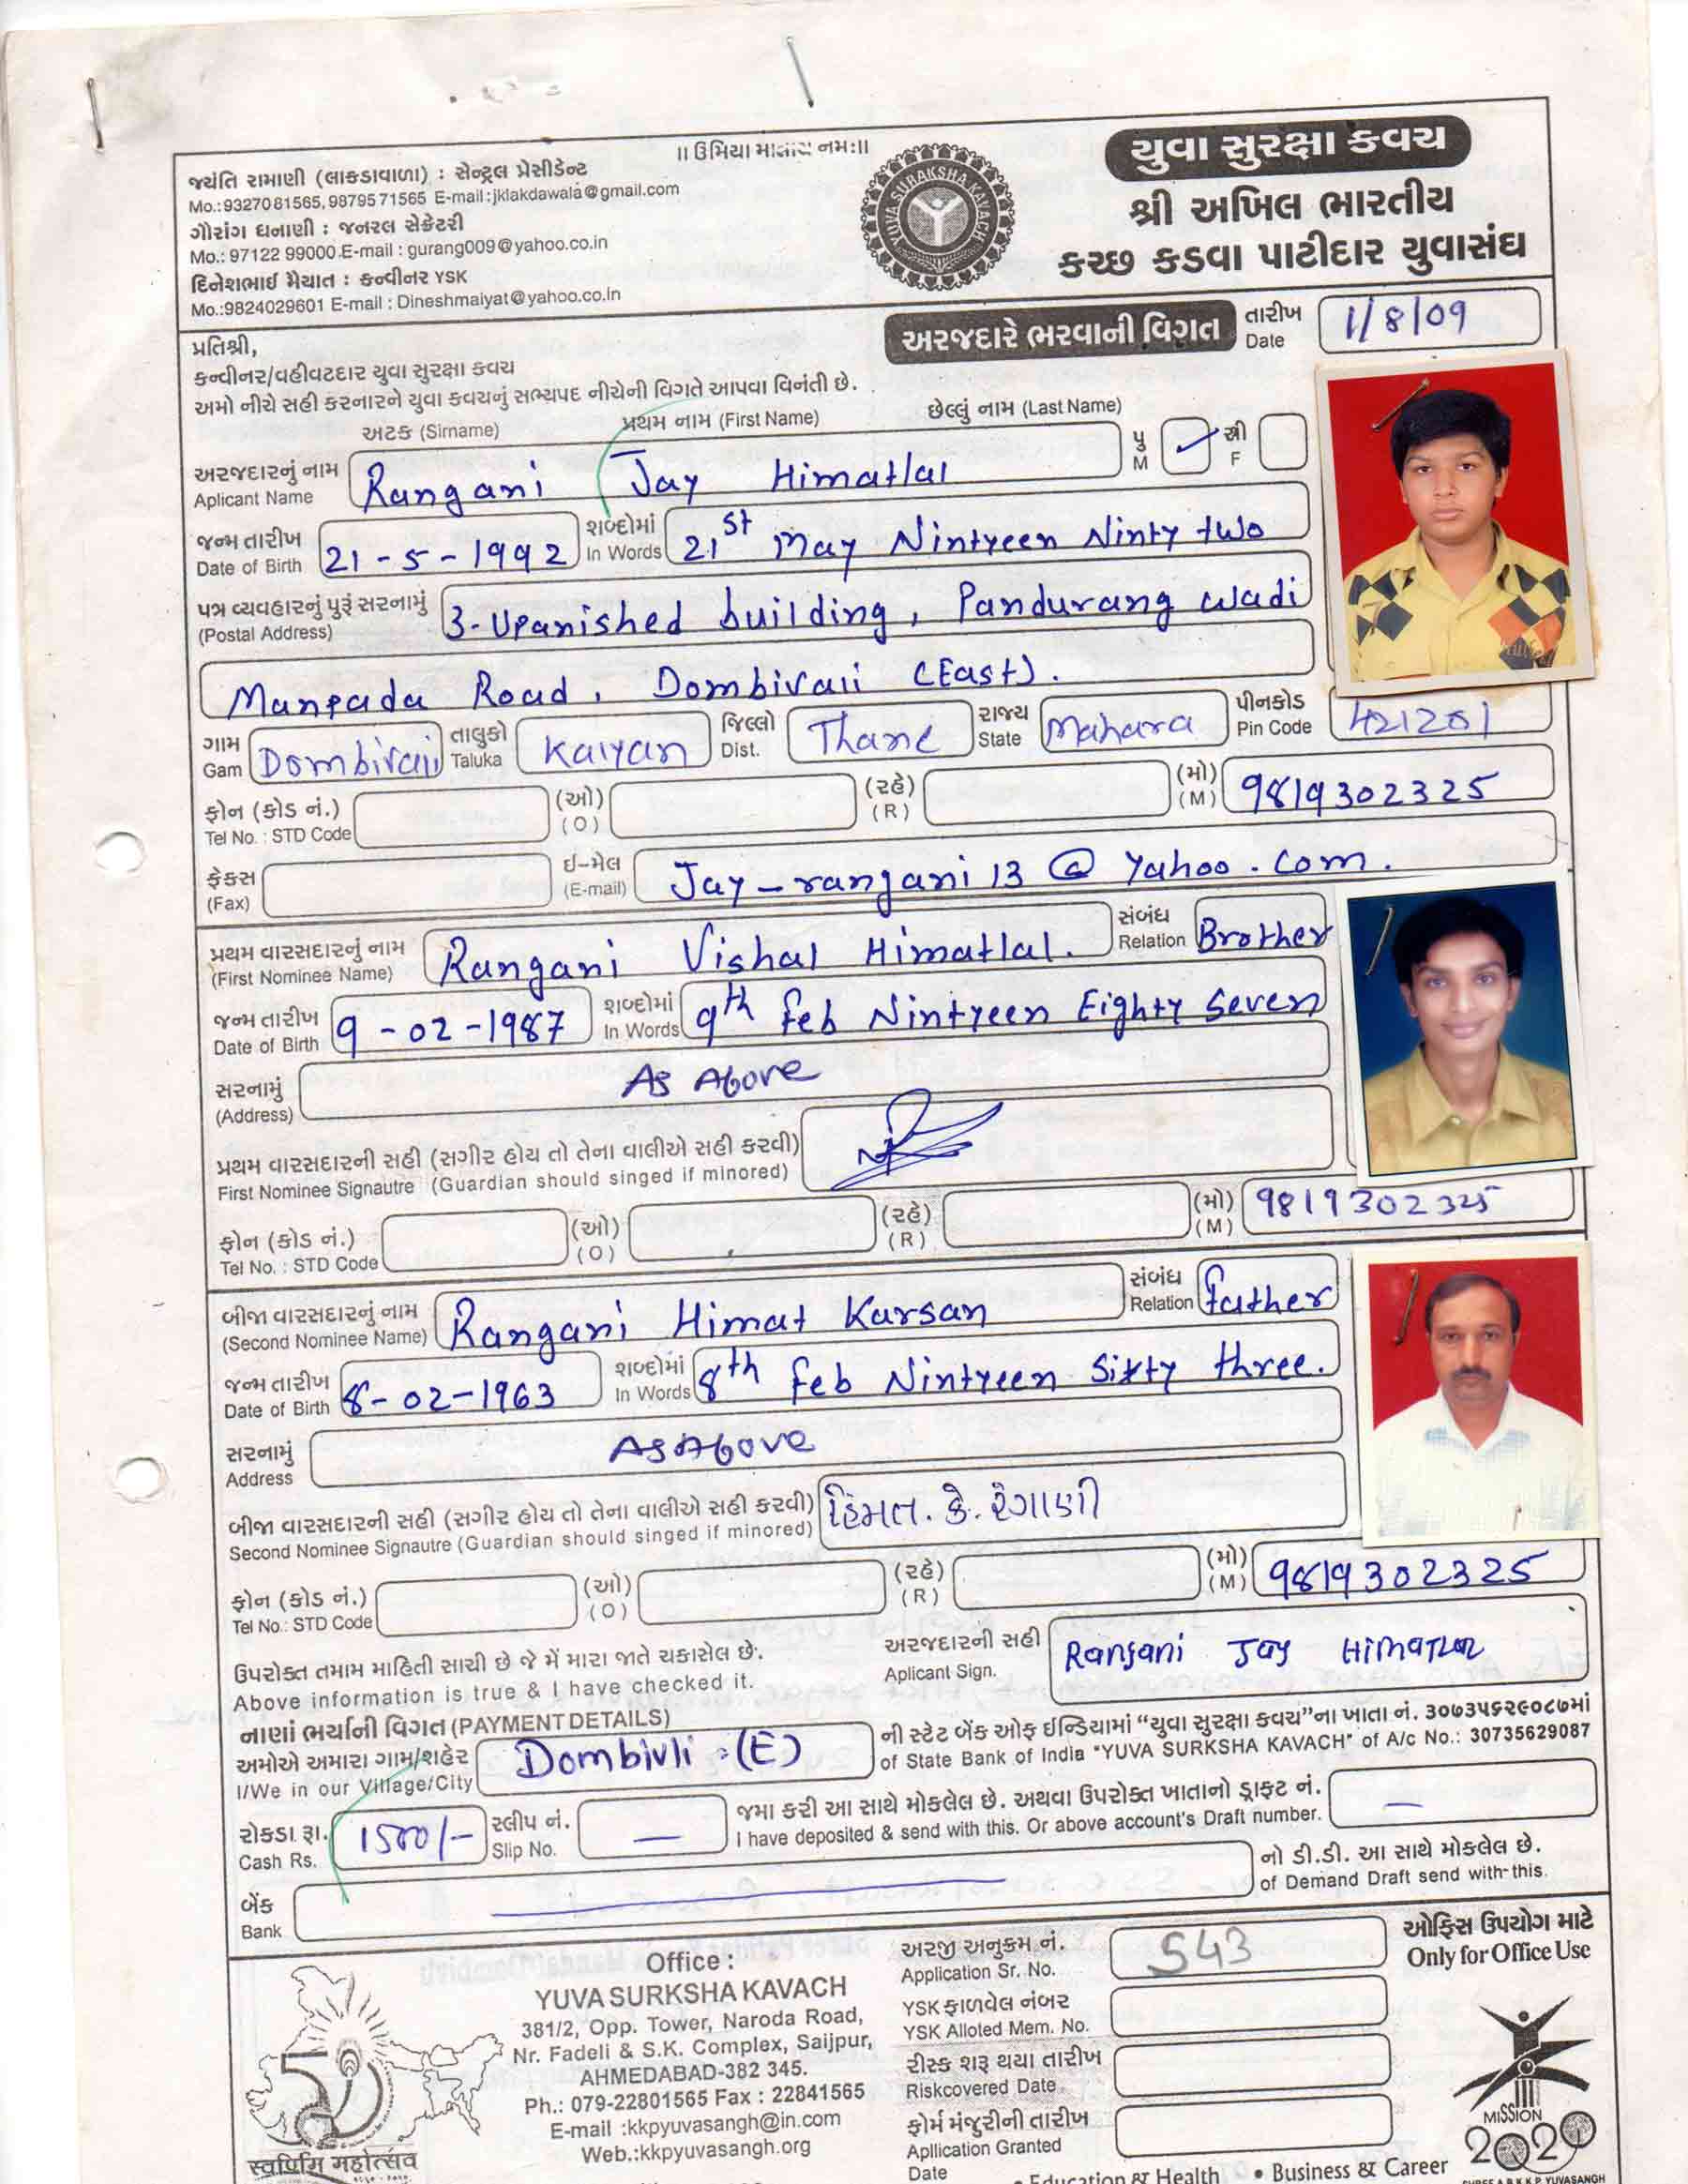 ॥ ઉમિયા માતાય નમઃ॥
જયંતિ રામાણી (લાકડાવાળા) : સેન્ટ્રલ પ્રેસીડેન્ટ
Mo.:9327081565, 9879571565 E-mail :jklakdawala@gmail.com
ગૌરાંગ ધનાણી : જનરલ સેક્રેટરી
Mo.: 97122 99000 E-mail : gurang009@yahoo.co.in
દિનેશભાઈ મૈયાત : કન્વીનર YSK
Mo.:9824029601 E-mail : Dineshmaiyat@yahoo.co.in
YUVA SURAKSHA KAVACH
યુવા સુરક્ષા કવચ
શ્રી અખિલ ભારતીય
કચ્છ કડવા પાટીદાર યુવાસંઘ
અરજદારે ભરવાની વિગત
તારીખ Date 1/8/09
પ્રતિશ્રી,
કન્વીનર/વહીવટદાર યુવા સુરક્ષા કવચ
અમો નીચે સહી કરનારને યુવા કવચનું સભ્યપદ નીચેની વિગતે આપવા વિનંતી છે.
અટક (Sirname) પ્રથમ નામ (First Name) છેલ્લું નામ (Last Name)
અરજદારનું નામ Aplicant Name Rangani Jay Himatlal પુ M સ્રી F
જન્મ તારીખ Date of Birth 21-5-1992 શબ્દોમાં In Words 21st May Nintyeen Ninty two
પત્ર વ્યવહારનું પુરૂં સરનામું (Postal Address) 3-Upanished building, Pandurang wadi
Manpada Road, Dombivali (East).
ગામ Gam Dombivali તાલુકો Taluka Kalyan જિલ્લો Dist. Thane રાજ્ય State Mahara પીનકોડ Pin Code 421201
ફોન (કોડ નં.) Tel No. : STD Code (ઓ) (O) (રહે) (R) (મો) (M) 9819302325
ફેકસ (Fax) ઈ-મેલ (E-mail) Jay_rangani13@yahoo.com.
પ્રથમ વારસદારનું નામ (First Nominee Name) Rangani Vishal Himatlal. સંબંધ Relation Brother
જન્મ તારીખ Date of Birth 9-02-1987 શબ્દોમાં In Words 9th feb Nintyeen Eighty seven
સરનામું (Address) As Above
પ્રથમ વારસદારની સહી (સગીર હોય તો તેના વાલીએ સહી કરવી)
First Nominee Signautre (Guardian should singed if minored)
ફોન (કોડ નં.) Tel No. : STD Code (ઓ) (O) (રહે) (R) (મો) (M) 9819302325
બીજા વારસદારનું નામ (Second Nominee Name) Rangani Himat Karsan સંબંધ Relation father
જન્મ તારીખ Date of Birth 8-02-1963 શબ્દોમાં In Words 8th feb Nintyeen Sixty three.
સરનામું Address As Above
બીજા વારસદારની સહી (સગીર હોય તો તેના વાલીએ સહી કરવી) હિંમત. કે. રંગાણી
Second Nominee Signautre (Guardian should singed if minored)
ફોન (કોડ નં.) Tel No.: STD Code (ઓ) (O) (રહે) (R) (મો) (M) 9819302325
ઉપરોક્ત તમામ માહિતી સાચી છે જે મેં મારા જાતે ચકાસેલ છે.
Above information is true & I have checked it.
અરજદારની સહી Aplicant Sign. Rangani Jay Himatlal
નાણાં ભર્યાની વિગત (PAYMENT DETAILS)
અમોએ અમારા ગામ/શહેર I/We in our Village/City Dombivli (E)
ની સ્ટેટ બેંક ઓફ ઈન્ડિયામાં “યુવા સુરક્ષા કવચ”ના ખાતા નં. ૩૦૭૩૫૬૨૯૦૮૭માં
of State Bank of India "YUVA SURKSHA KAVACH" of A/c No.: 30735629087
રોકડા રૂા. Cash Rs. 1500/- સ્લીપ નં. Slip No. —
જમા કરી આ સાથે મોકલેલ છે. અથવા ઉપરોક્ત ખાતાનો ડ્રાફ્ટ નં. —
I have deposited & send with this. Or above account's Draft number.
બેંક Bank
નો ડી.ડી. આ સાથે મોકલેલ છે.
of Demand Draft send with this.
Office :
YUVA SURKSHA KAVACH
381/2, Opp. Tower, Naroda Road,
Nr. Fadeli & S.K. Complex, Saijpur,
AHMEDABAD-382 345.
Ph.: 079-22801565 Fax : 22841565
E-mail :kkpyuvasangh@in.com
Web.:kkpyuvasangh.org
અરજી અનુક્રમ નં. Application Sr. No. 543
YSK ફાળવેલ નંબર
YSK Alloted Mem. No.
રીસ્ક શરૂ થયા તારીખ
Riskcovered Date
ફોર્મ મંજુરીની તારીખ
Apllication Granted
Date
ઓફિસ ઉપયોગ માટે
Only for Office Use
50
स्वर्णिम महोत्सव
MISSION
2020
• Education & Health • Business & Career